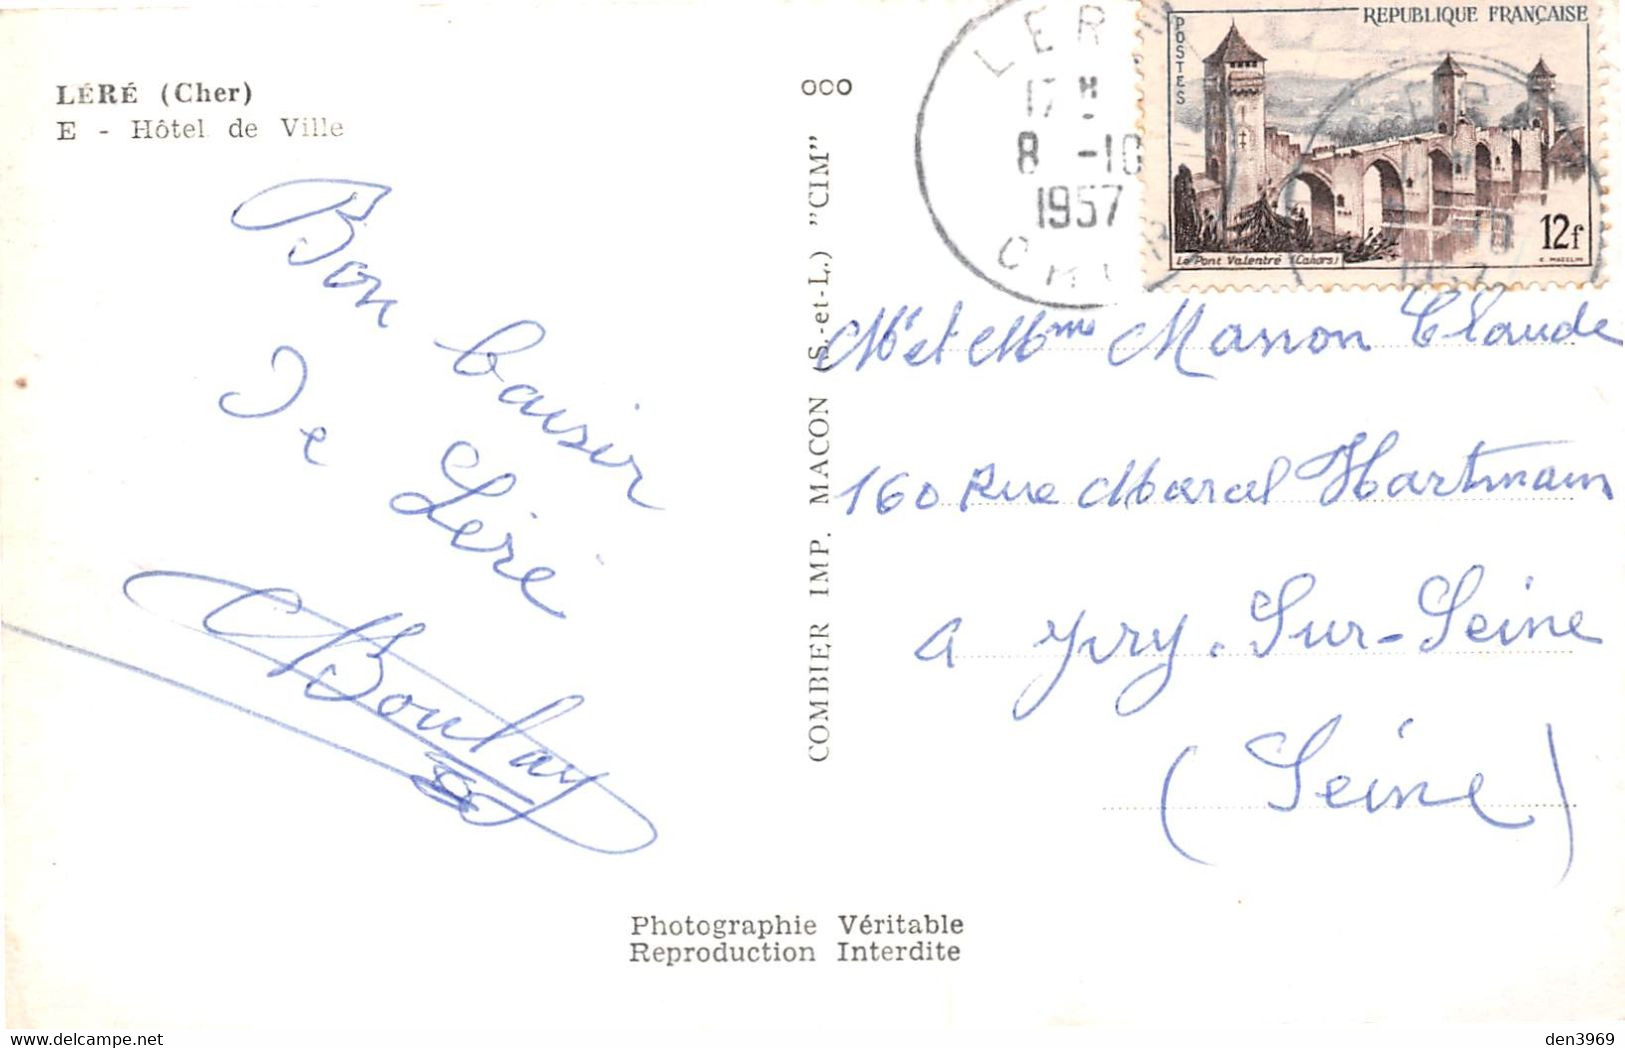 LÉRÉ (Cher)
E - Hôtel de Ville
Bon baisir
De Léré
CBoulay
OOO
COMBIER IMP. MACON (S.-et-L.) "CIM"
LERE
17 H
8 -10
1957
CHER
REPUBLIQUE FRANÇAISE
POSTES
12f
Le Pont Valentré (Cahors)
C. MAZELIN
Mr et Mme Masson Claude
160 Rue Marcel Hartmann
a Yvry-Sur-Seine
(Seine)
Photographie Véritable
Reproduction Interdite
den3969